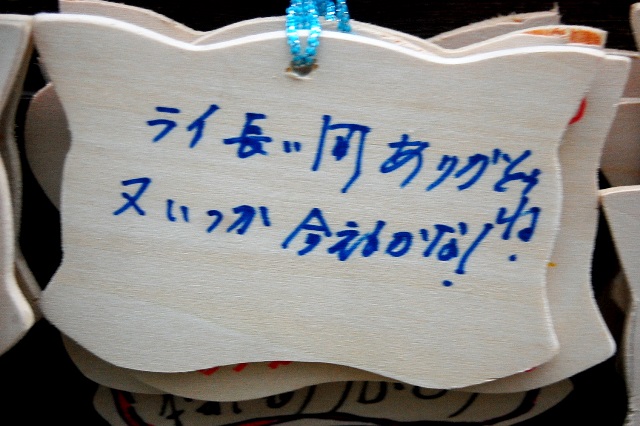 ライ長い间ありがとうね!
又いつか会えるかな!